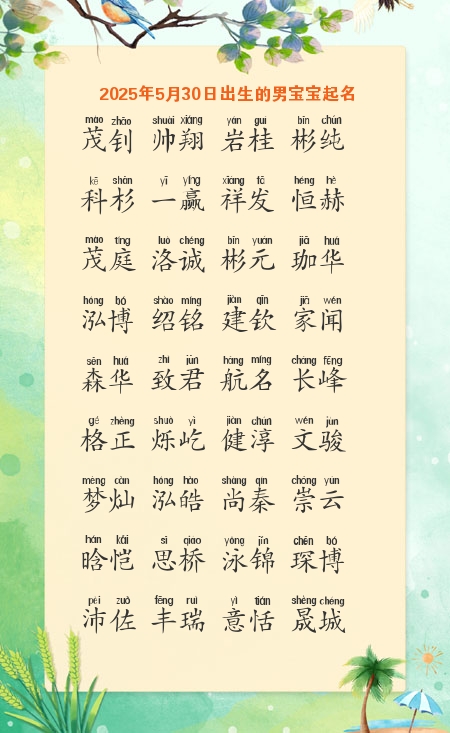 2025年5月30日出生的男宝宝起名
mào zhāo shuài xiáng yán guì bīn chún
茂钊 帅翔 岩桂 彬纯
kē shān yī yíng xiáng fā héng hè
科杉 一赢 祥发 恒赫
mào tíng luò chéng bīn yuán jiā huá
茂庭 洛诚 彬元 珈华
hóng bó shào míng jiàn qīn jiā wén
泓博 绍铭 建钦 家闻
sēn huá zhì jūn háng míng cháng fēng
森华 致君 航名 长峰
gé zhèng shuò yì jiàn chún wén jùn
格正 烁屹 健淳 文骏
mèng càn hóng hào shàng qín chóng yún
梦灿 泓皓 尚秦 崇云
hán kǎi sī qiáo yǒng jǐn chēn bó
晗恺 思桥 泳锦 琛博
pèi zuǒ fēng ruì yì tián shèng chéng
沛佐 丰瑞 意恬 晟城